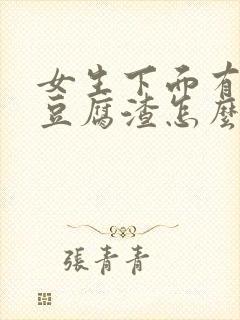 女生下面有
豆腐渣怎麼
張青青